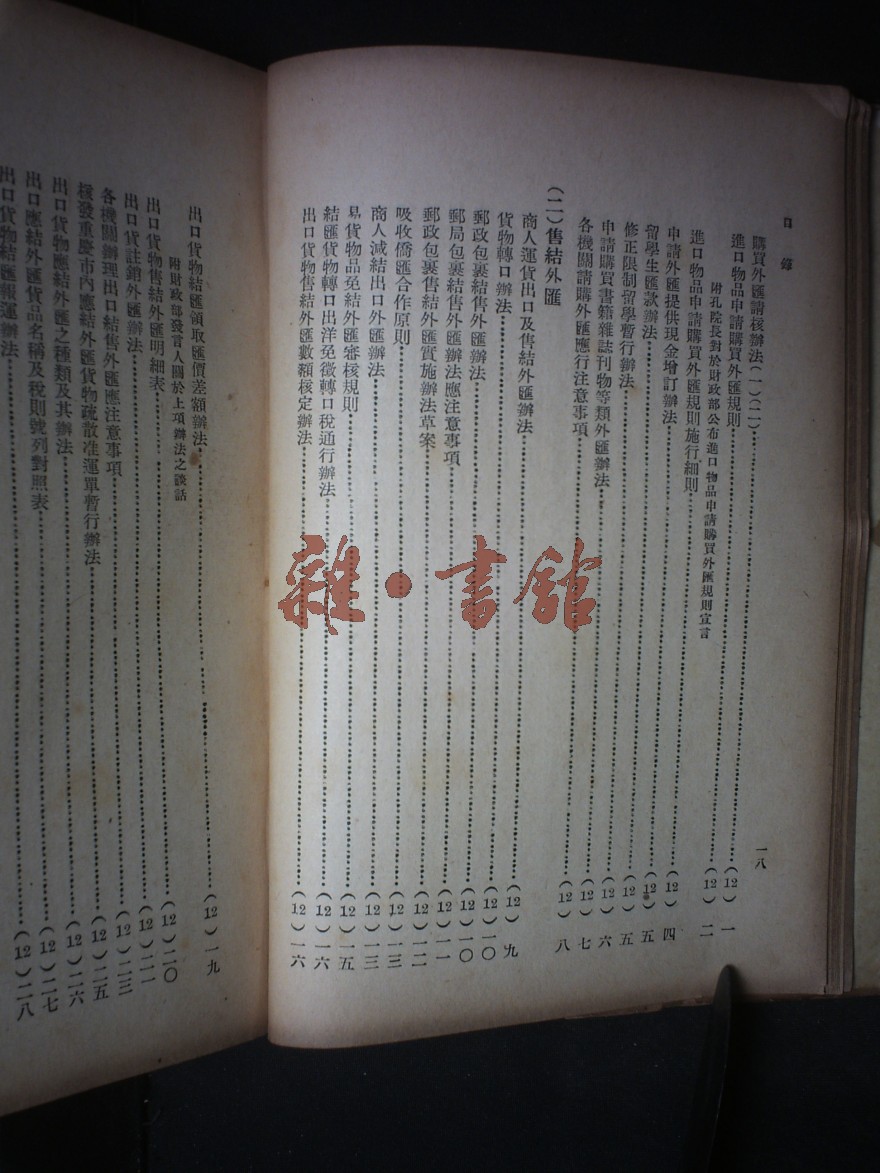 目錄 一八
購買外匯請核辦法(一)(二)……(12)一
進口物品申請購買外匯規則……(12)二
附孔院長對於財政部公布進口物品申請購買外匯規則宣言
進口物品申請購買外匯規則施行細則……(12)四
申請外匯提供現金增訂辦法……(12)五
留學生匯款辦法……(12)五
修正限制留學暫行辦法……(12)六
申請購買書籍雜誌刊物等類外匯辦法……(12)七
各機關請購外匯應行注意事項……(12)八
(二)售結外匯
商人運貨出口及售結外匯辦法……(12)九
貨物轉口辦法……(12)一〇
郵政包裹結售外匯辦法……(12)一〇
郵局包裹結售外匯辦法應注意事項……(12)一一
郵政包裹售結外匯實施辦法草案……(12)一二
吸收僑匯合作原則……(12)一三
商人減結出口外匯辦法……(12)一三
易貨物品免結外匯審核規則……(12)一五
結匯貨物轉口出洋免徵轉口稅通行辦法……(12)一六
出口貨物售結外匯數額核定辦法……(12)一六
出口貨物結匯領取匯價差額辦法……(12)一九
附財政部發言人關於上項辦法之談話
出口貨物售結外匯明細表……(12)二〇
出口貨註銷外匯辦法……(12)二一
各機關辦理出口結售外匯應注意事項……(12)二三
核發重慶市內應結外匯貨物疏散准運單暫行辦法……(12)二五
出口貨物應結外匯之種類及其辦法……(12)二六
出口應結外匯貨品名稱及稅則號列對照表……(12)二七
出口貨物結匯報運辦法……(12)二八
雜·書館